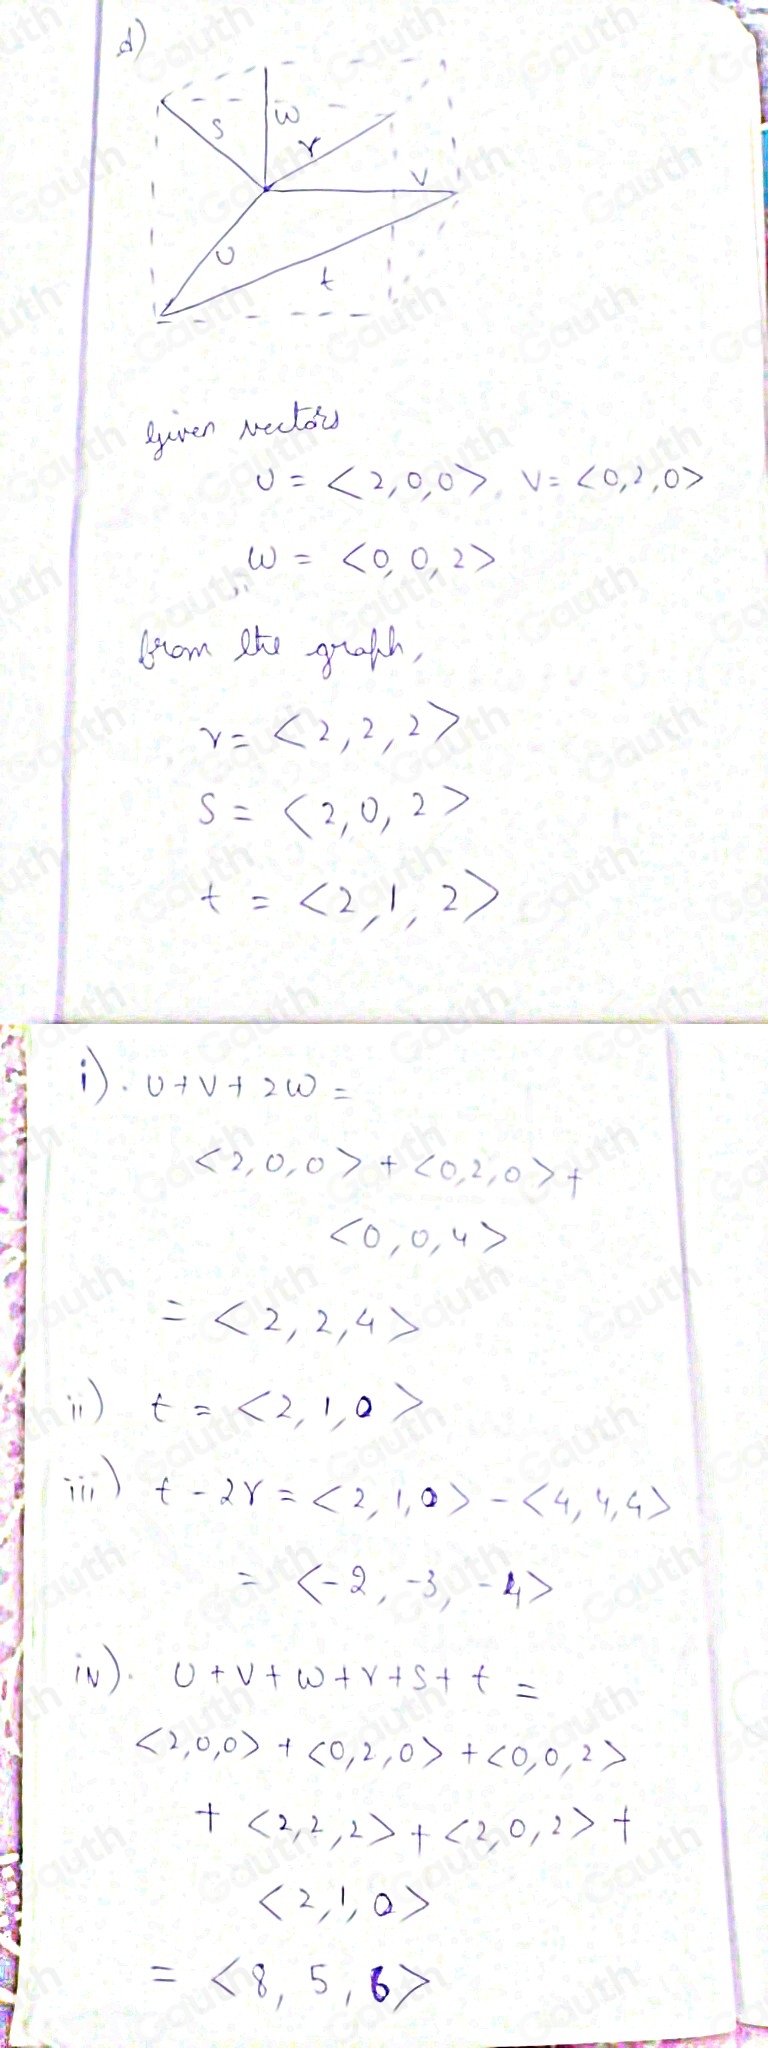 d)
S
W
r
V
U
t
Given vectors
U = <2,0,0>, V = <0,2,0>
W = <0,0,2>
from the graph,
r = <2,2,2>
S = <2,0,2>
t = <2,1,2>
i). U+V+2W =
<2,0,0> + <0,2,0> +
<0,0,4>
= <2,2,4>
ii) t = <2,1,0>
iii) t - 2r = <2,1,0> - <4,4,4>
= <-2,-3,-4>
iv). U+V+W+r+S+t =
<2,0,0> + <0,2,0> + <0,0,2>
+ <2,2,2> + <2,0,2> +
<2,1,0>
= <8,5,6>
Gauth